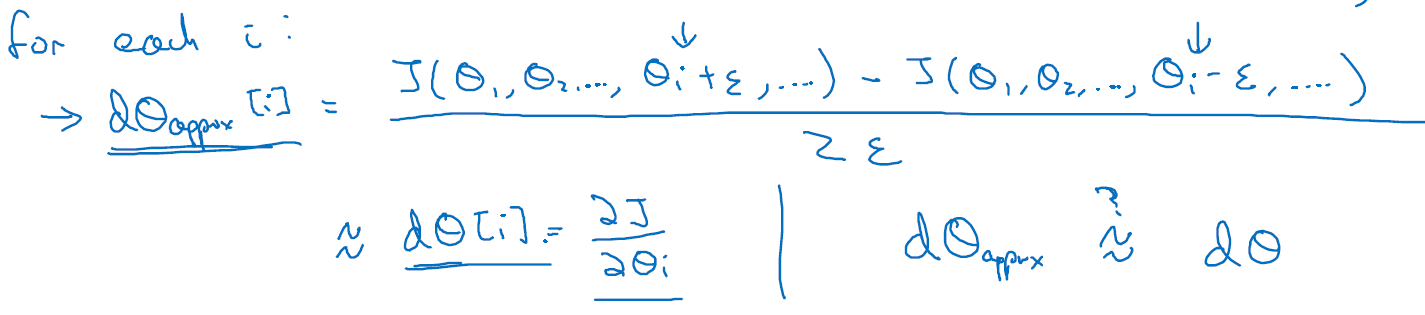 for each i:
→ dθapprox[i] = J(θ₁,θ₂,..., θᵢ+ε,...) - J(θ₁,θ₂,..., θᵢ-ε,....) / 2ε
≈ dθ[i] = ∂J/∂θᵢ | dθapprox ≈? dθ